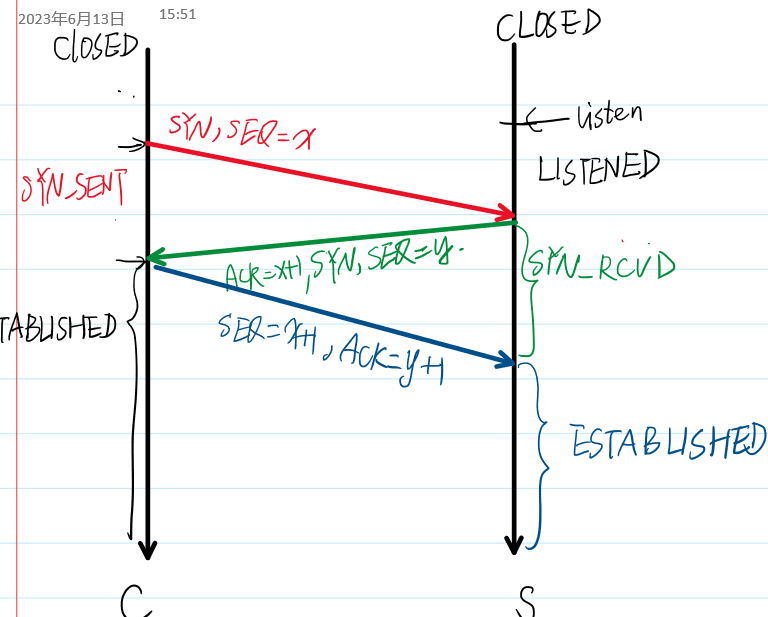 2023年6月13日 15:51
CLOSED
CLOSED
listen
SYN, SEQ=x
LISTENED
SYN_SENT
ACK=x+1, SYN, SEQ=y.
SYN_RCVD
TABLISHED
SEQ=x+1, ACK=y+1
ESTABLISHED
C
S